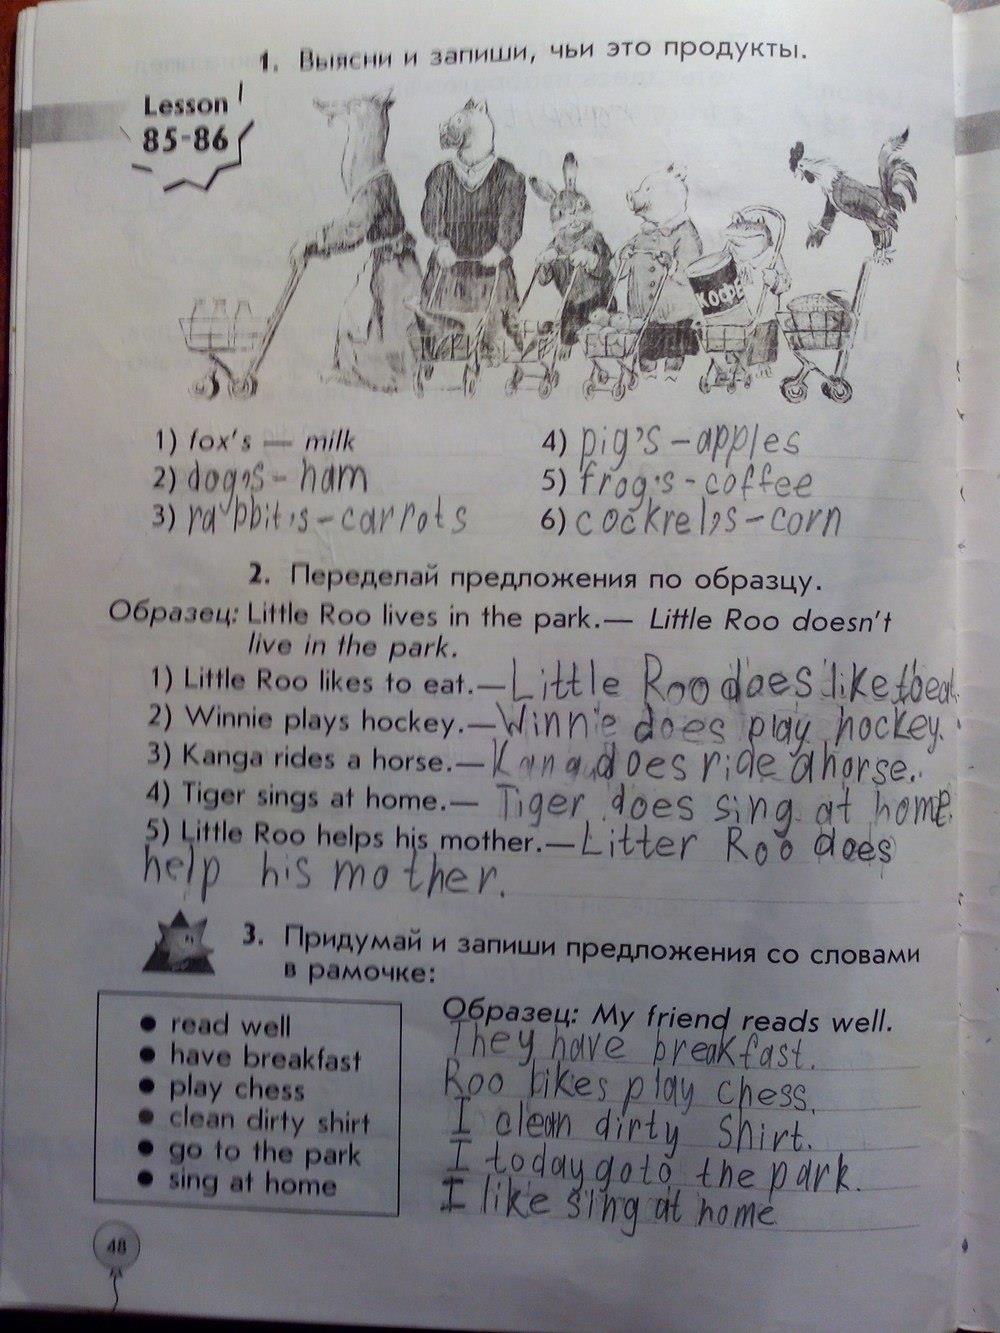 1. Выясни и запиши, чьи это продукты.
Lesson
85-86
КОФЕ
1) fox's — milk
4) pig's - apples
2) dog's - ham
5) frog's - coffee
3) rabbit's - carrots
6) cockrel's - corn
2. Переделай предложения по образцу.
Образец: Little Roo lives in the park.— Little Roo doesn't
live in the park.
1) Little Roo likes to eat.— Little Roo does like to eat.
2) Winnie plays hockey.— Winnie does play hockey.
3) Kanga rides a horse.— Kanga does ride a horse.
4) Tiger sings at home.— Tiger does sing at home.
5) Little Roo helps his mother.— Litter Roo does
help his mother.
3. Придумай и запиши предложения со словами
в рамочке:
Образец: My friend reads well.
● read well
They have breakfast.
● have breakfast
Roo likes play chess.
● play chess
I clean dirty shirt.
● clean dirty shirt
I today go to the park.
● go to the park
I like sing at home
● sing at home
48